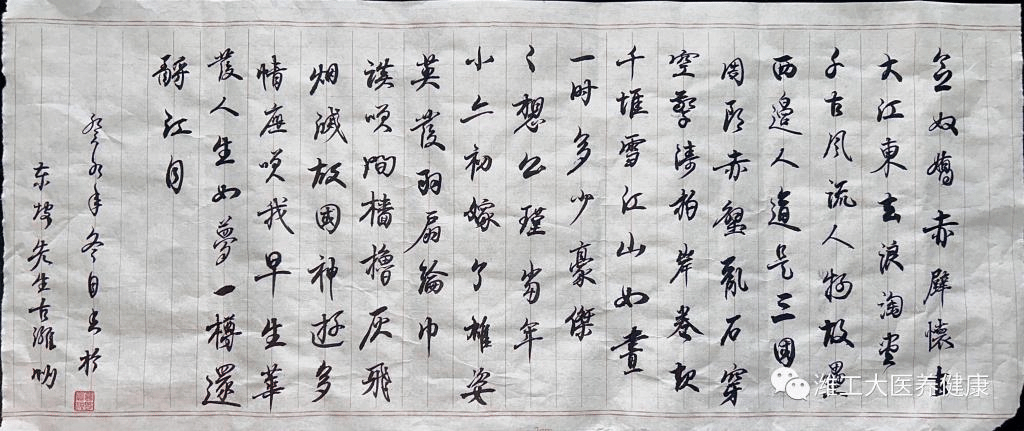 念奴嬌赤壁懷古
大江東去浪淘盡
千古風流人物故壘
西邊人道是三國
周郎赤壁亂石穿
空驚濤拍岸卷起
千堆雪江山如畫
一时多少豪傑
想公瑾當年
小乔初嫁了雄姿
英發羽扇綸巾
談笑間檣櫓灰飛
烟滅故國神遊多
情應笑我早生華
發人生如夢一樽還
酹江月
癸卯年冬日书於
东坡先生古濰州
潍工大医养健康